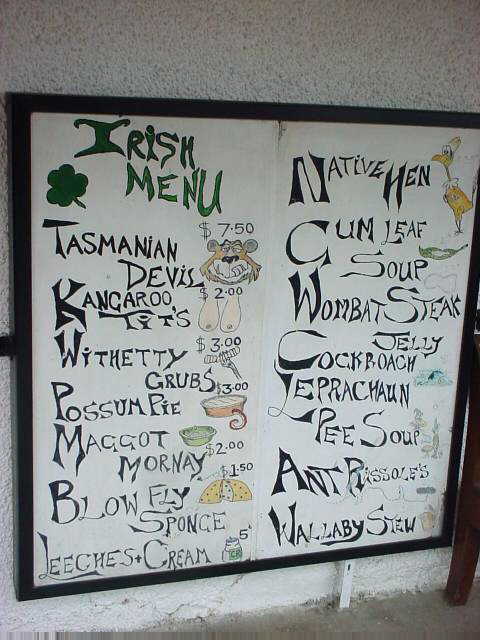 IRISH
MENU
TASMANIAN $7.50
DEVIL
KANGAROO $2.00
TIT'S
WITHETTY $3.00
GRUBS
POSSUM PIE $3.00
MAGGOT
MORNAY $2.00
BLOW FLY $1.50
SPONGE
LEECHES + CREAM 5¢
NATIVE HEN
GUM LEAF
SOUP
WOMBAT STEAK
JELLY
COCKROACH
LEPRACHAUN
PEE SOUP
ANT RISSOLE'S
WALLABY STEW